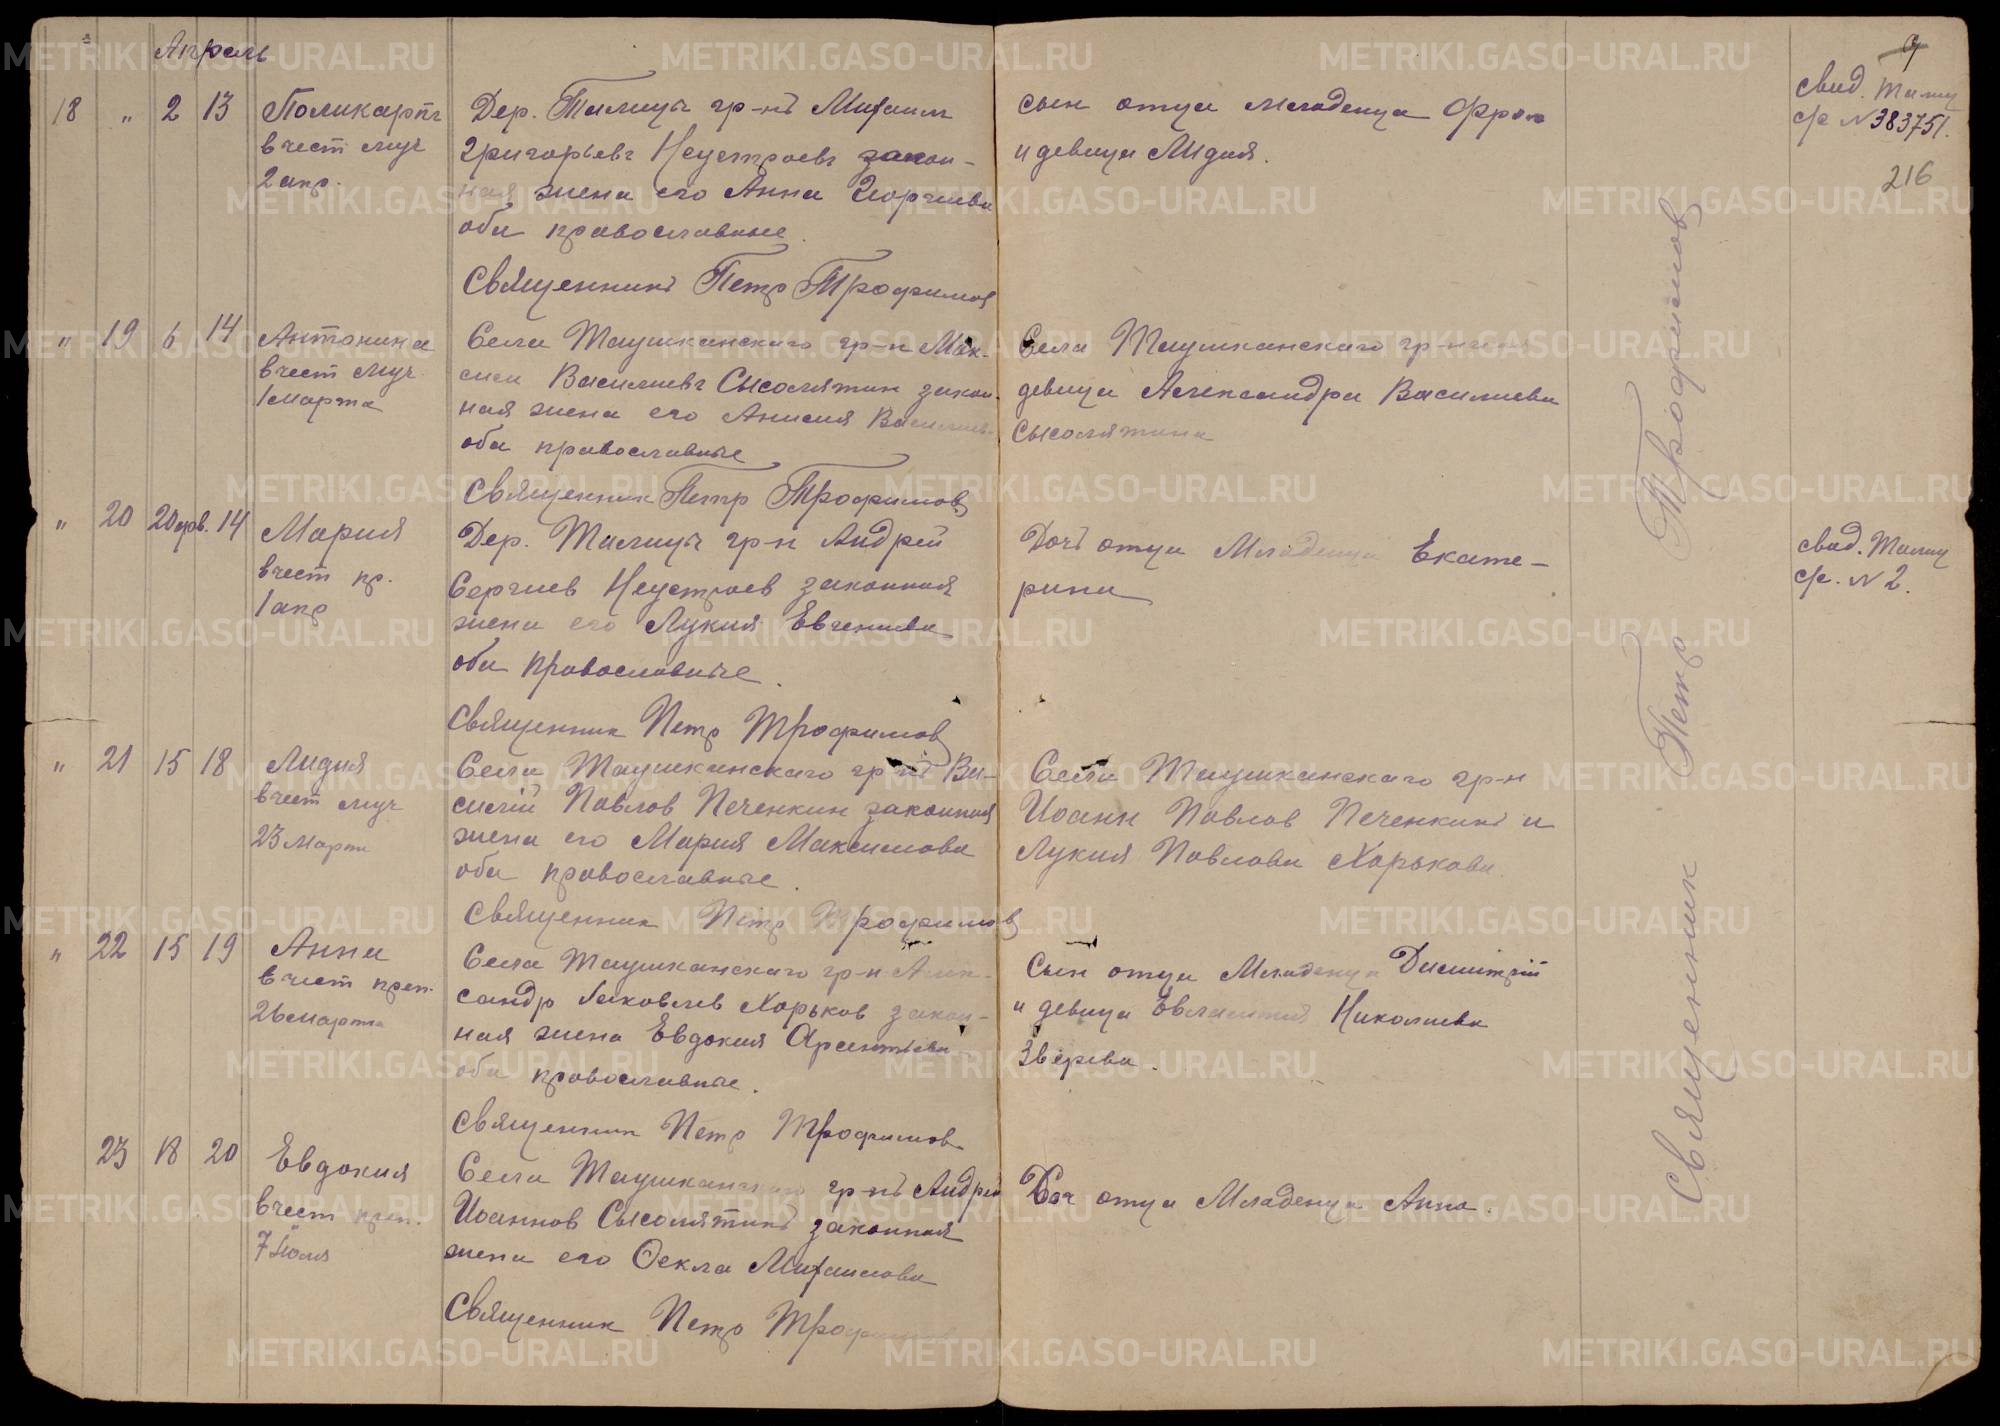 Апрель
9
18 " 2 13 Поликарпъ
в чест муч
2 апр.
Дер. Талицы гр-нъ Михаил
Григорьевъ Неустроевъ закон-
ная жена его Анна Георгиева
оба православные.
Священникъ Петр Трофимов
сын отца младенца Фрол
и девица Лидия.
свид. Талиц
с/с №383751.
216
" 19 6 14 Антонина
в чест муч
1 марта
Села Таушканскаго гр-н Мак-
сим Васильевъ Сысолятин закон-
ная жена его Анисия Василиев
оба православные
Священник Петр Трофимов
Села Таушканскаго
девица Александра Василиева
Сысолятина
" 20 20 фев. 14 Мария
в чест пр.
1 апр
Дер. Талицы гр-н Андрей
Сергиев Неустроев законная
жена его Лукия Евгениева
оба православные.
Священник Петр Трофимов
Дочь отца Младенца Екате-
рина
свид. Талиц
с/с. №2.
" 21 15 18 Лидия
в чест муч
23 Марта
Села Таушканскаго гр-нъ Ва-
силий Павлов Печенкин законная
жена его Мария Максимова
оба православные.
Священник Петр Трофимов
Села Таушканскаго гр-н
Иоанн Павлов Печенкинъ и
Лукия Павлова Харькова.
" 22 15 19 Анна
в чест преп.
26 марта
Села Таушканскаго гр-н Алек-
сандр Иаковлев Харьков закон-
ная жена Евдокия Арсентиева
оба православные.
Священник Петр Трофимов
Сын отца Младенца Димитрий
и девица Евлампия Николаева
Зверева.
23 18 20 Евдокия
в чест преп.
7 Июля
Села Таушканскаго гр-нъ Андрей
Иоаннов Сысолятинъ законная
жена его Фекла Михаилова
Священник Петр Трофимов
Доч отца Младенца Анна.
Священник Петр Трофимов
METRIKI.GASO-URAL.RU